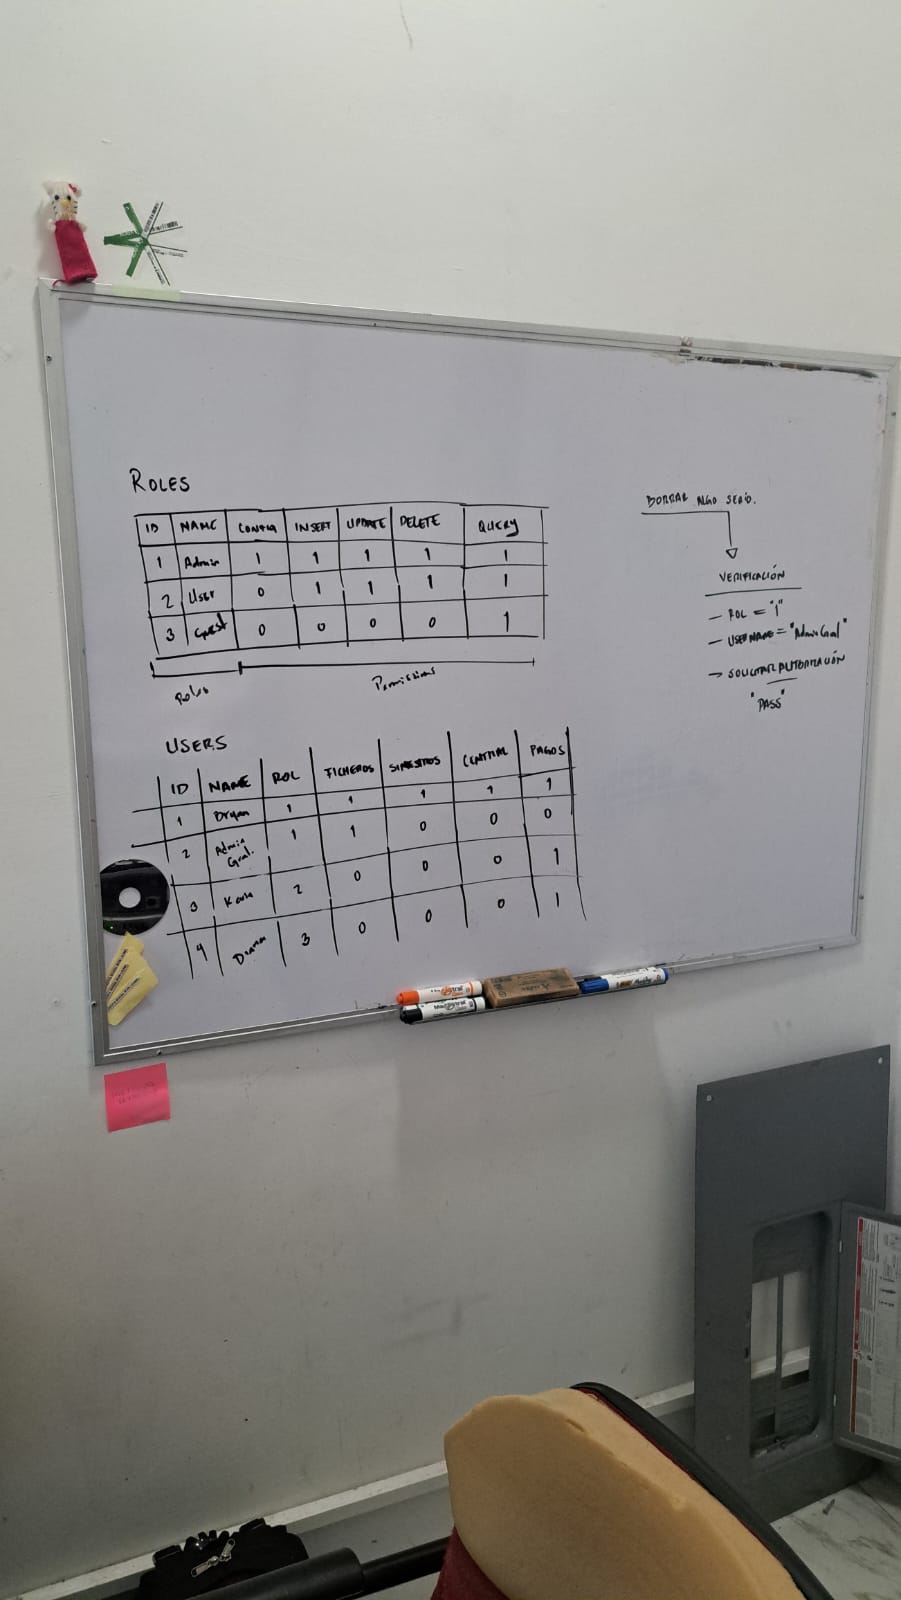 ROLES
ID NAME CONFIG INSERT UPDATE DELETE QUERY
1 Admin 1 1 1 1 1
2 User 0 1 1 1 1
3 Guest 0 0 0 0 1
Roles Permissions
USERS
ID NAME ROL FICHEROS SINIESTROS CENTRAL PAGOS
1 1 1 1 1 1
2 Admin Gral. 1 1 0 0 0
3 Karla 2 0 0 0 1
4 3 0 0 0 1
BORRAR ALGO SERIO.
VERIFICACIÓN
- ROL = "1"
- USERNAME = "AdminGral"
- SOLICITAR AUTORIZACIÓN
"PASS"